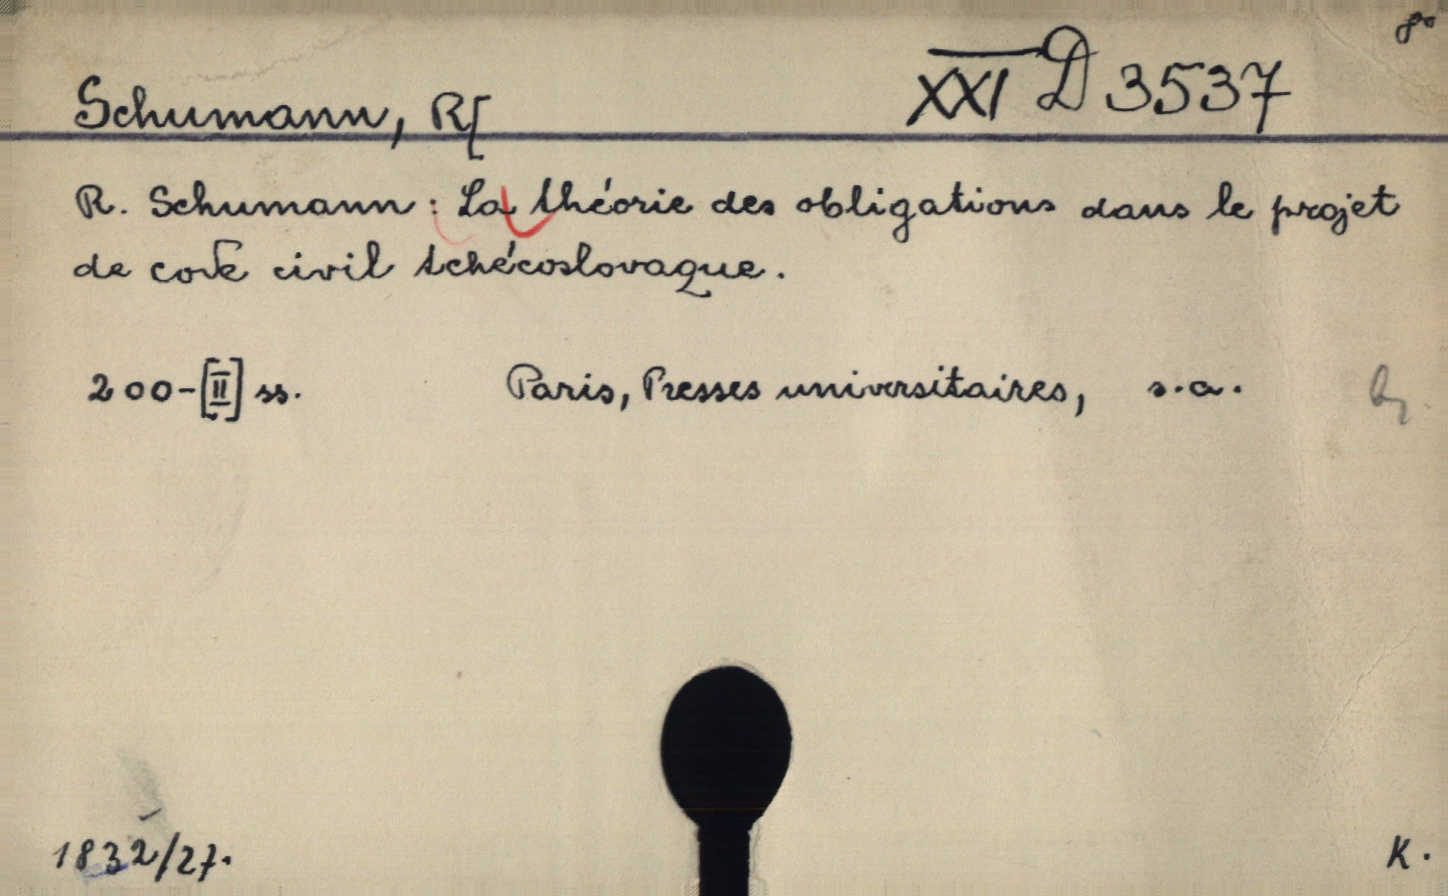 8°
Schumann, R[
XXI D 3537
R. Schumann: La théorie des obligations dans le projet
de code civil tchécoslovaque.
200-[II] ss. Paris, Presses universitaires, s.a.
1832/27.
K.